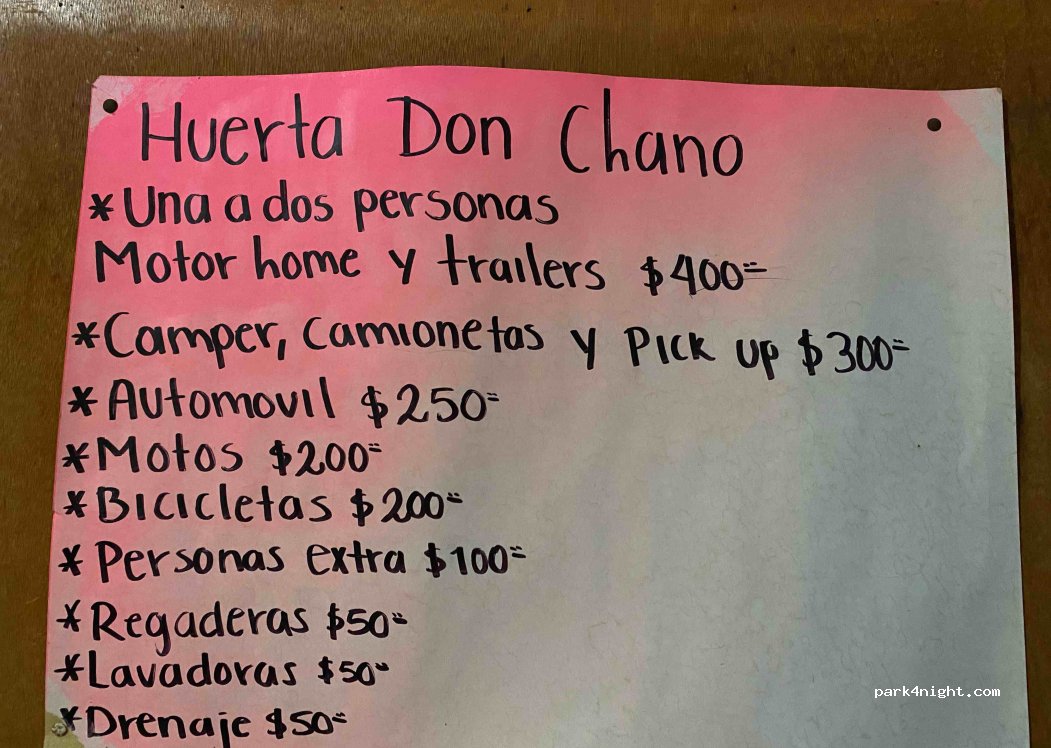 Huerta Don Chano
*Una a dos personas
Motor home y trailers $400=
*Camper, camionetas y Pick up $300=
*Automovil $250=
*Motos $200=
*Bicicletas $200=
*Personas extra $100=
*Regaderas $50=
*Lavadoras $50=
*Drenaje $50=
park4night.com